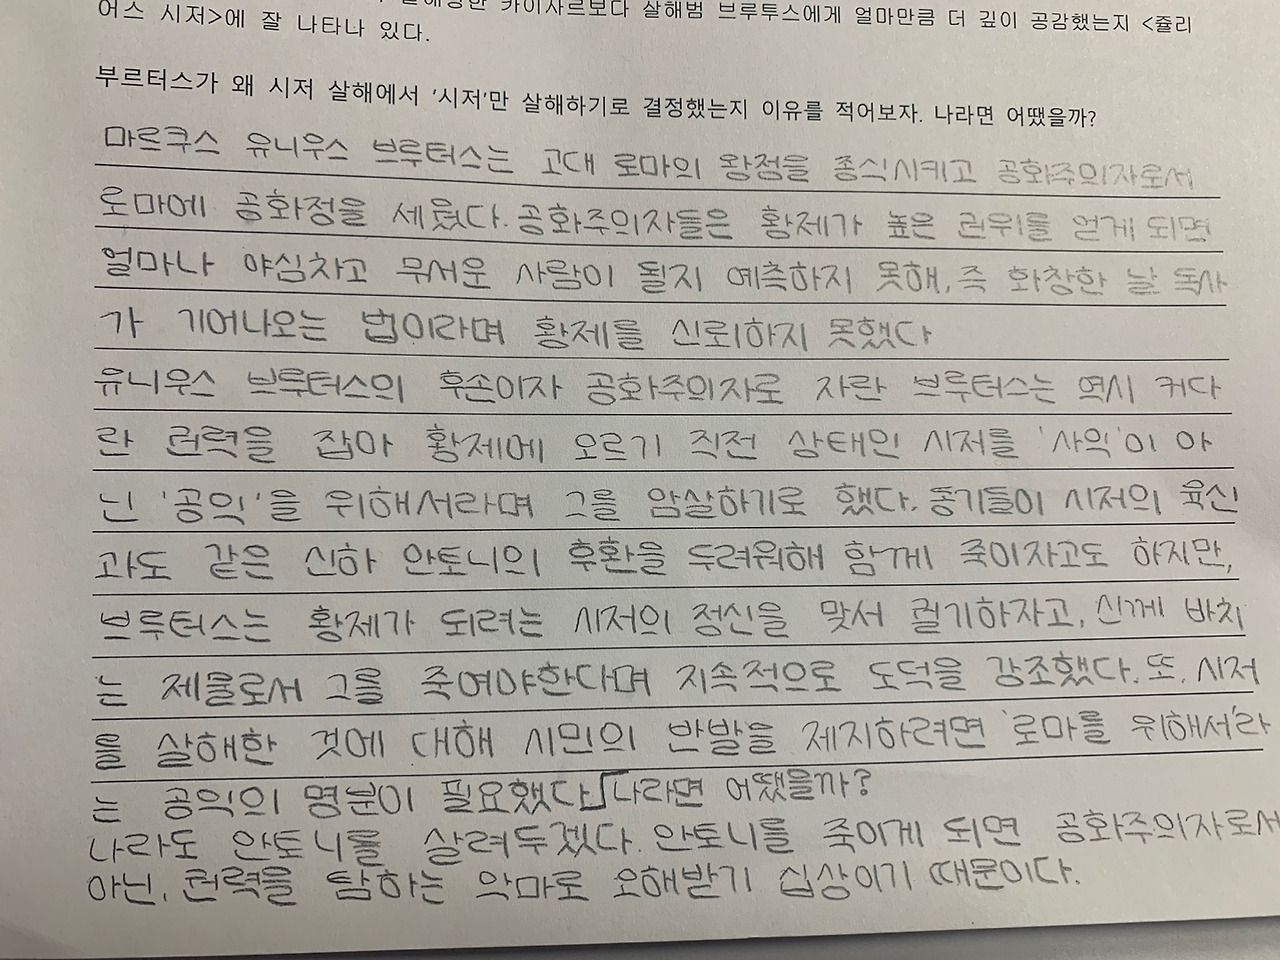 카이사르보다 살해범 브루투스에게 얼마만큼 더 깊이 공감했는지 <쥴리
어스 시저>에 잘 나타나 있다.
부르터스가 왜 시저 살해에서 '시저'만 살해하기로 결정했는지 이유를 적어보자. 나라면 어땠을까?
마르쿠스 유니우스 브루터스는 고대 로마의 왕정을 종식시키고 공화주의자로서
로마에 공화정을 세웠다. 공화주의자들은 황제가 높은 권위를 얻게 되면
얼마나 야심차고 무서운 사람이 될지 예측하지 못해, 즉 화창한 날 독사
가 기어나오는 법이라며 황제를 신뢰하지 못했다
유니우스 브루터스의 후손이자 공화주의자로 자란 브루터스는 역시 커다
란 권력을 잡아 황제에 오르기 직전 상태인 시저를 '사익'이 아
닌 '공익'을 위해서라며 그를 암살하기로 했다. 동기들이 시저의 육신
과도 같은 신하 안토니의 후환을 두려워해 함께 죽이자고도 하지만,
브루터스는 황제가 되려는 시저의 정신을 맞서 궐기하자고, 신께 바치
는 제물로서 그를 죽여야한다며 지속적으로 도덕을 강조했다. 또, 시저
를 살해한 것에 대해 시민의 반발을 제지하려면 '로마를 위해서'라
는 공익의 명분이 필요했다. 나라면 어땠을까?
나라도 안토니를 살려두겠다. 안토니를 죽이게 되면 공화주의자로서
아닌, 권력을 탐하는 악마로 오해받기 십상이기 때문이다.